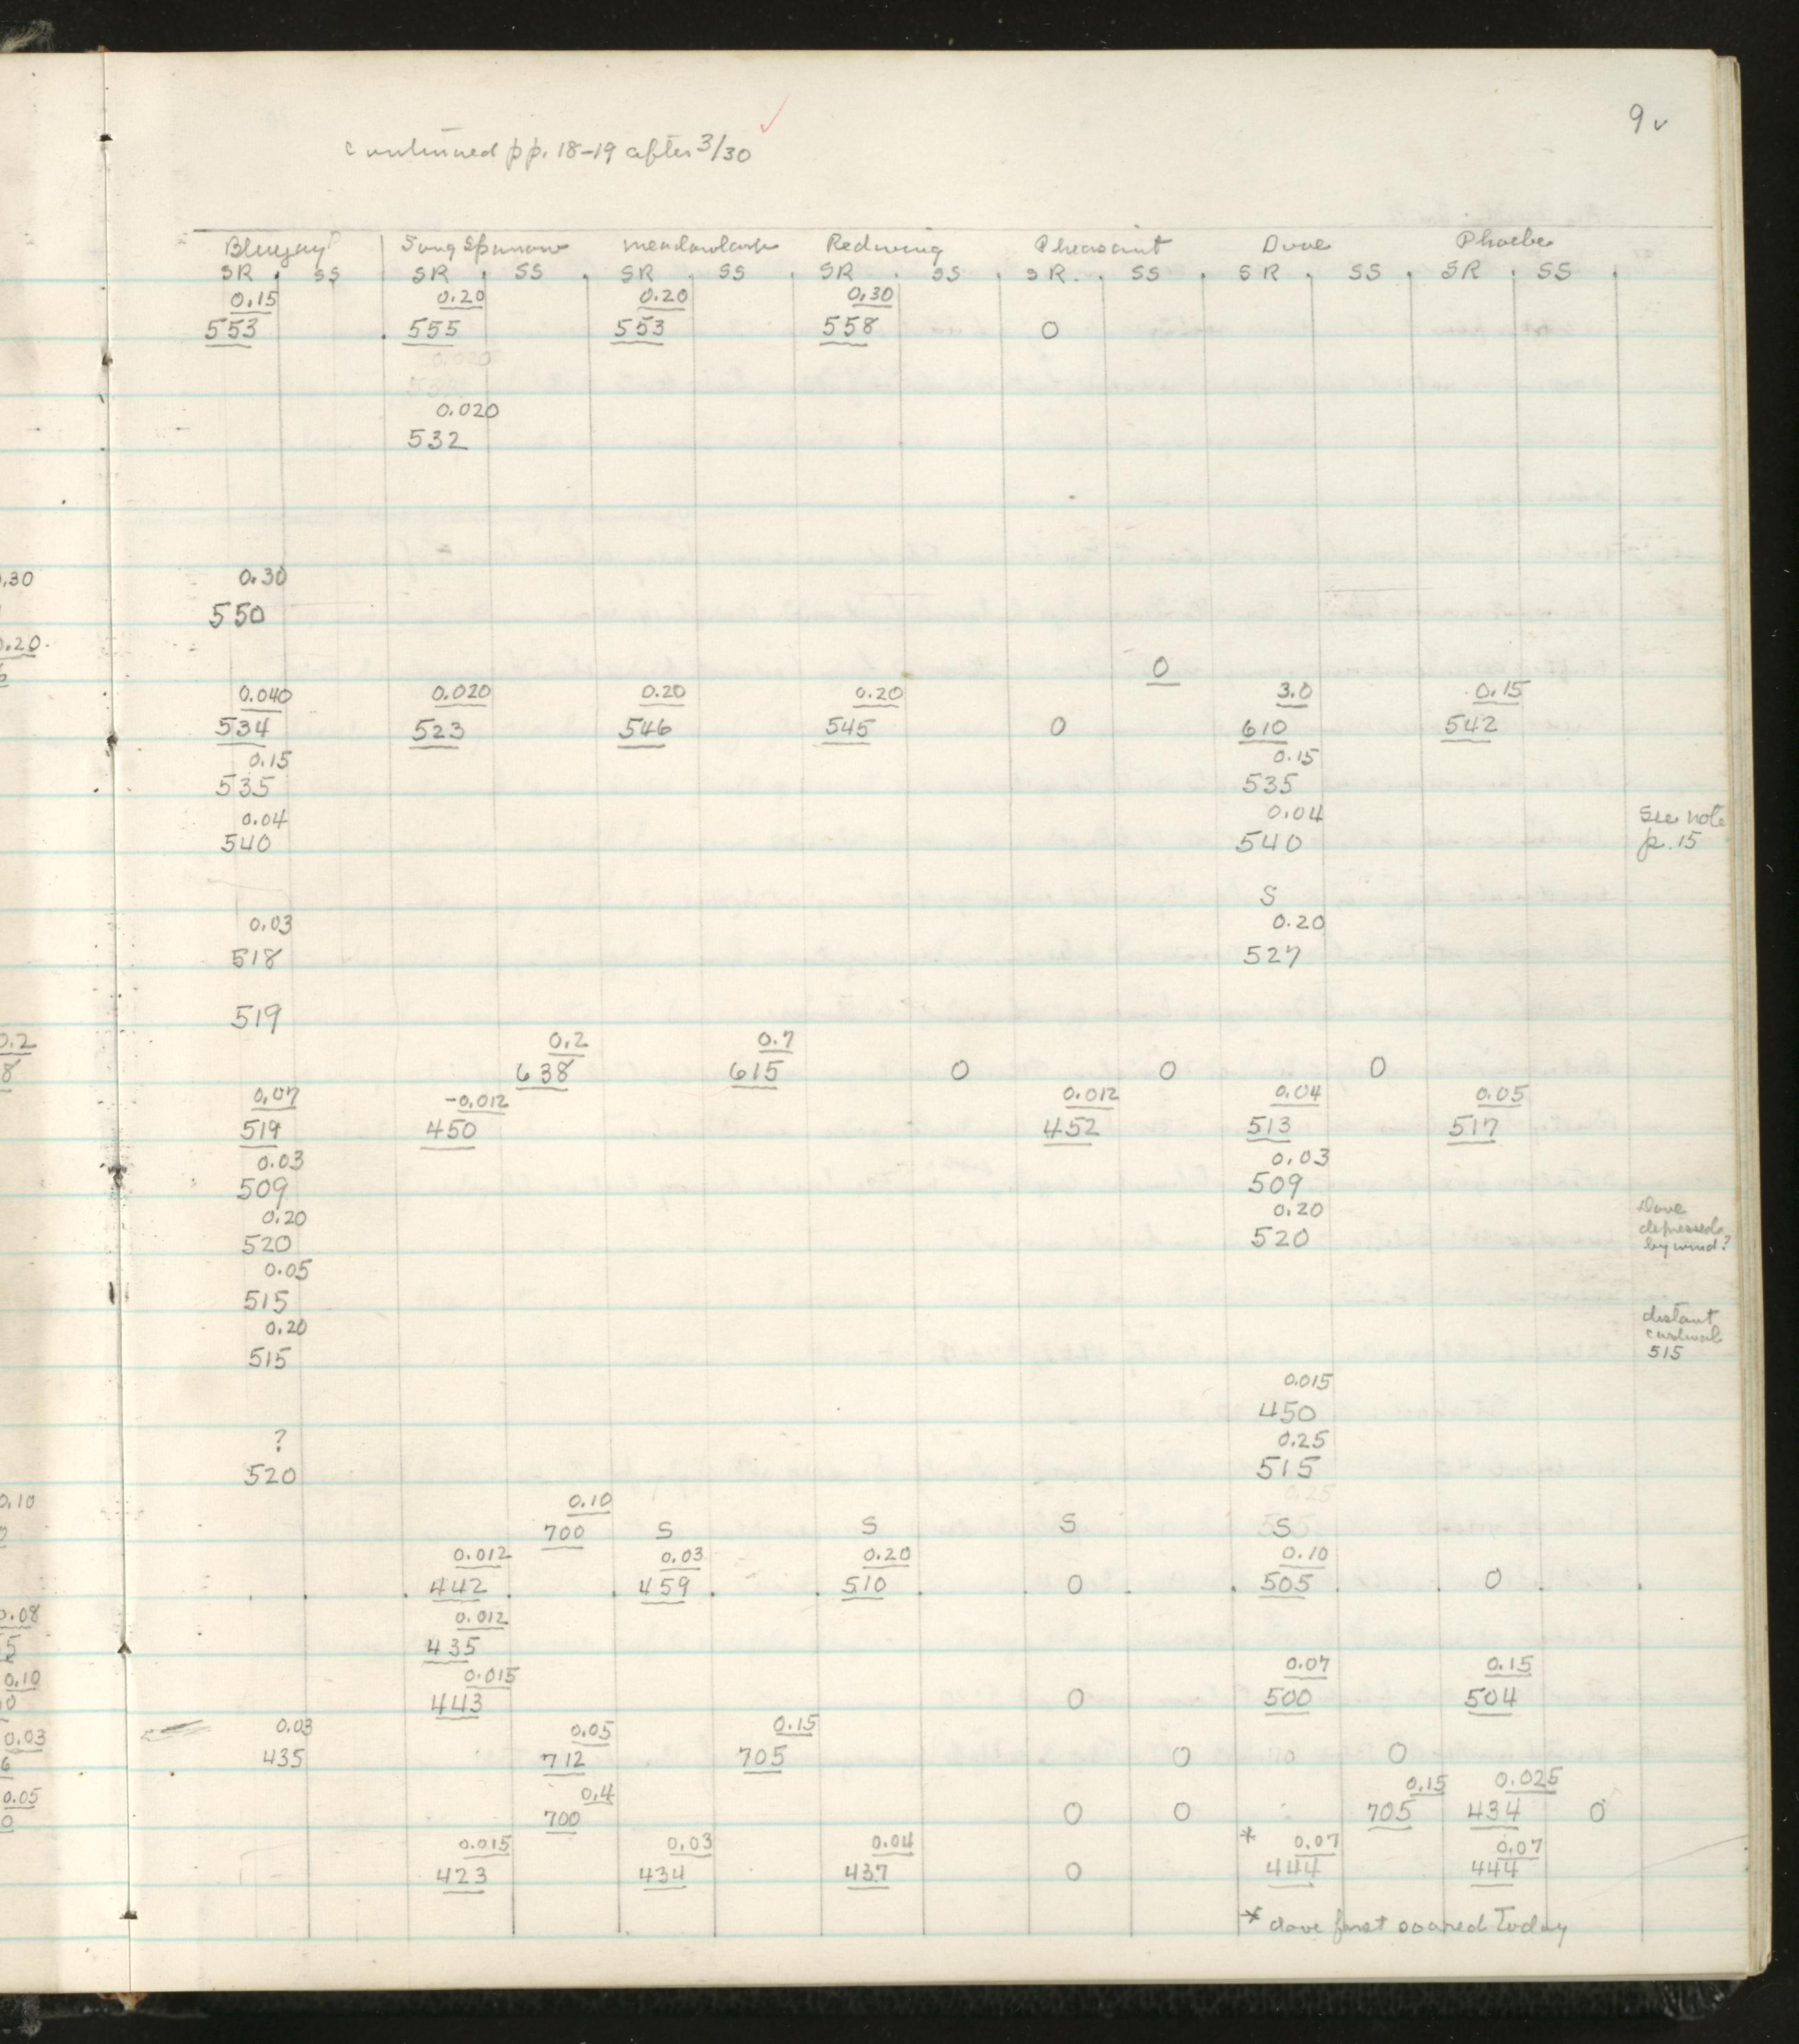 9 v
continued pp. 18-19 after 3/30
Bluejay Song Sparrow meadowlark Redwing Pheasant Dove Phoebe
SR SS SR SS SR SS SR SS SR SS SR SS SR SS
0.15 0.20 0.20 0.30
553 555 553 558 0
0.020
0.020
532
0.30 0.30
550
0.20
0
0.040 0.020 0.20 0.20 3.0 0.15
534 523 546 545 0 610 542
0.15 0.15
535 535
0.04 0.04 See note
540 540 p. 15
S
0.03 0.20
518 527
519
0.2 0.2 0.7
8 638 615 0 0 0
0.07 -0.012 0.012 0.04 0.05
519 450 452 513 517
0.03 0.03
509 509
0.20 0.20 Dove
depressed
520 520 by wind?
0.05
515
0.20 distant
cardinal
515 515
0.015
450
? 0.25
520 515
0.25
0.10 0.10
2 700 S S S S
0.012 0.03 0.20 0.10
442 459 510 0 505 0
0.08 0.012
5 435
0.10 0.015 0.07 0.15
0 443 0 500 504
0.03 0.03 0.05 0.15
6 435 712 705 0 0
0.05 0.4 0.15 0.025
0 700 0 0 705 434 0
0.015 0.03 0.04 * 0.07 0.07
423 434 437 0 444 444
* dove first soared Today